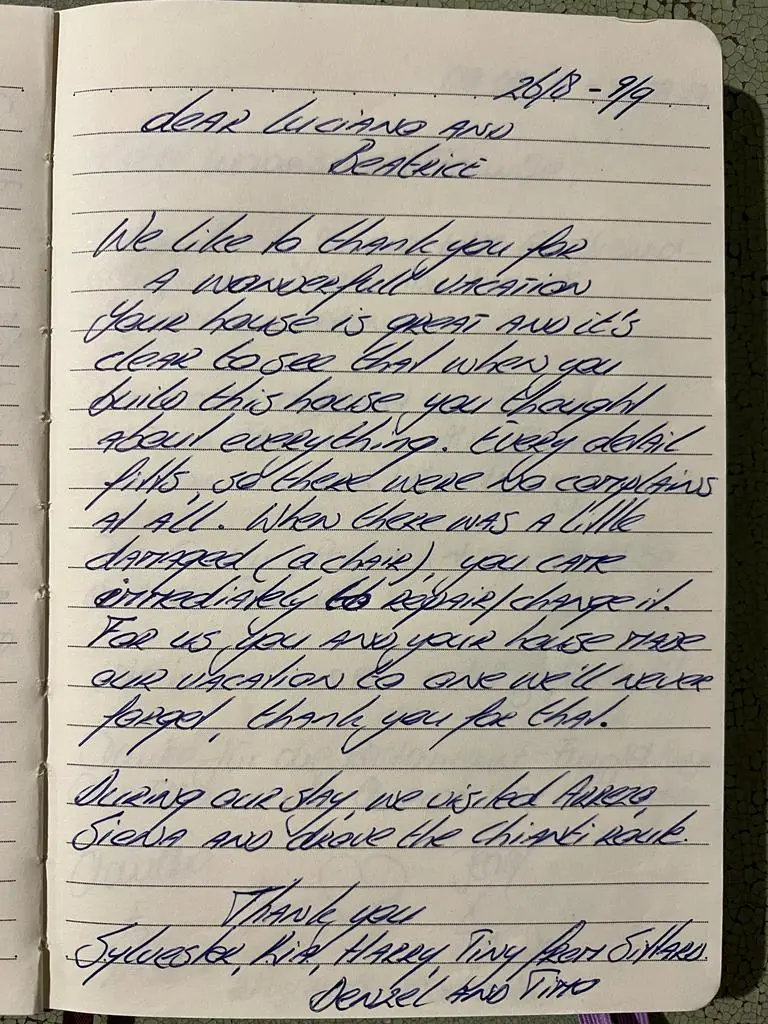 26/8 - 9/9
dear Luciano and
Beatrice
We like to thank you for
a wonderfull vacation
Your house is great and it's
clear to see that when you
build this house you thought
about everything. Every detail
fitts, so there were no complains
at all. When there was a little
damaged (a chair), you came
immediately to repair/change it.
For us, you and your house made
our vacation to one we'll never
forget, thank you for that.
During our stay, we visited Arrezo,
Siena and drove the Chianti route.
Thank you
Sylvester, Ria, Harry, Tiny from Sittard.
Denzel and Timo